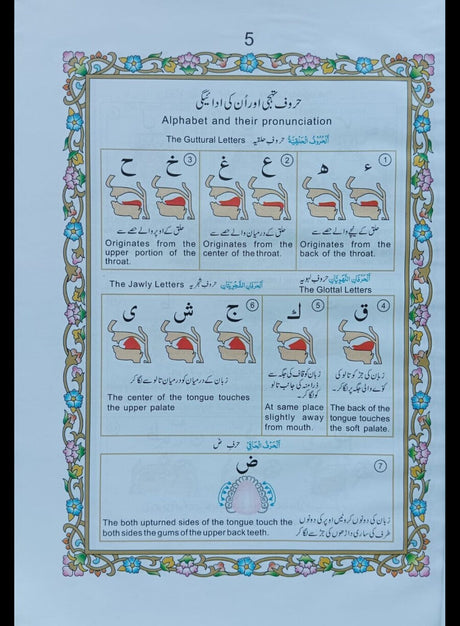 5
حروف تہجی اور اُن کی ادائیگی
Alphabet and their pronunciation
The Guttural Letters حروفِ حلقیہ اَلْحُرُوْفُ الْحَلْقِيَّةُ
ح خ ③ غ ع ② ه ء ①
حلق کے اوپر والے حصے سے
Originates from the
upper portion of the
throat.
حلق کے درمیان والے حصے سے
Originates from the
center of the throat.
حلق کے نیچے والے حصے سے
Originates from the
back of the throat.
The Jawly Letters حروف شجریہ
حروف لہویہ
The Glottal Letters
ی ش ج ⑥ ك ⑤ ق ④
زبان کے درمیان کو درمیان تالو سے لگا کر
The center of the tongue touches
the upper palate
زبان کو قاف کی جگہ سے
ذرا منہ کی جانب تالو
کو لگا کر۔
At same place
slightly away
from mouth.
زبان کی جڑ کو تالو کی
کوّے والی جگہ پر لگا کر۔
The back of the
tongue touches
the soft palate.
حرفِ ض
ض ⑦
The both upturned sides of the tongue touch the
both sides the gums of the upper back teeth.
زبان کی دونوں کروٹیں اوپر کی دونوں
طرف کی ساری داڑھوں کی جڑ سے لگا کر